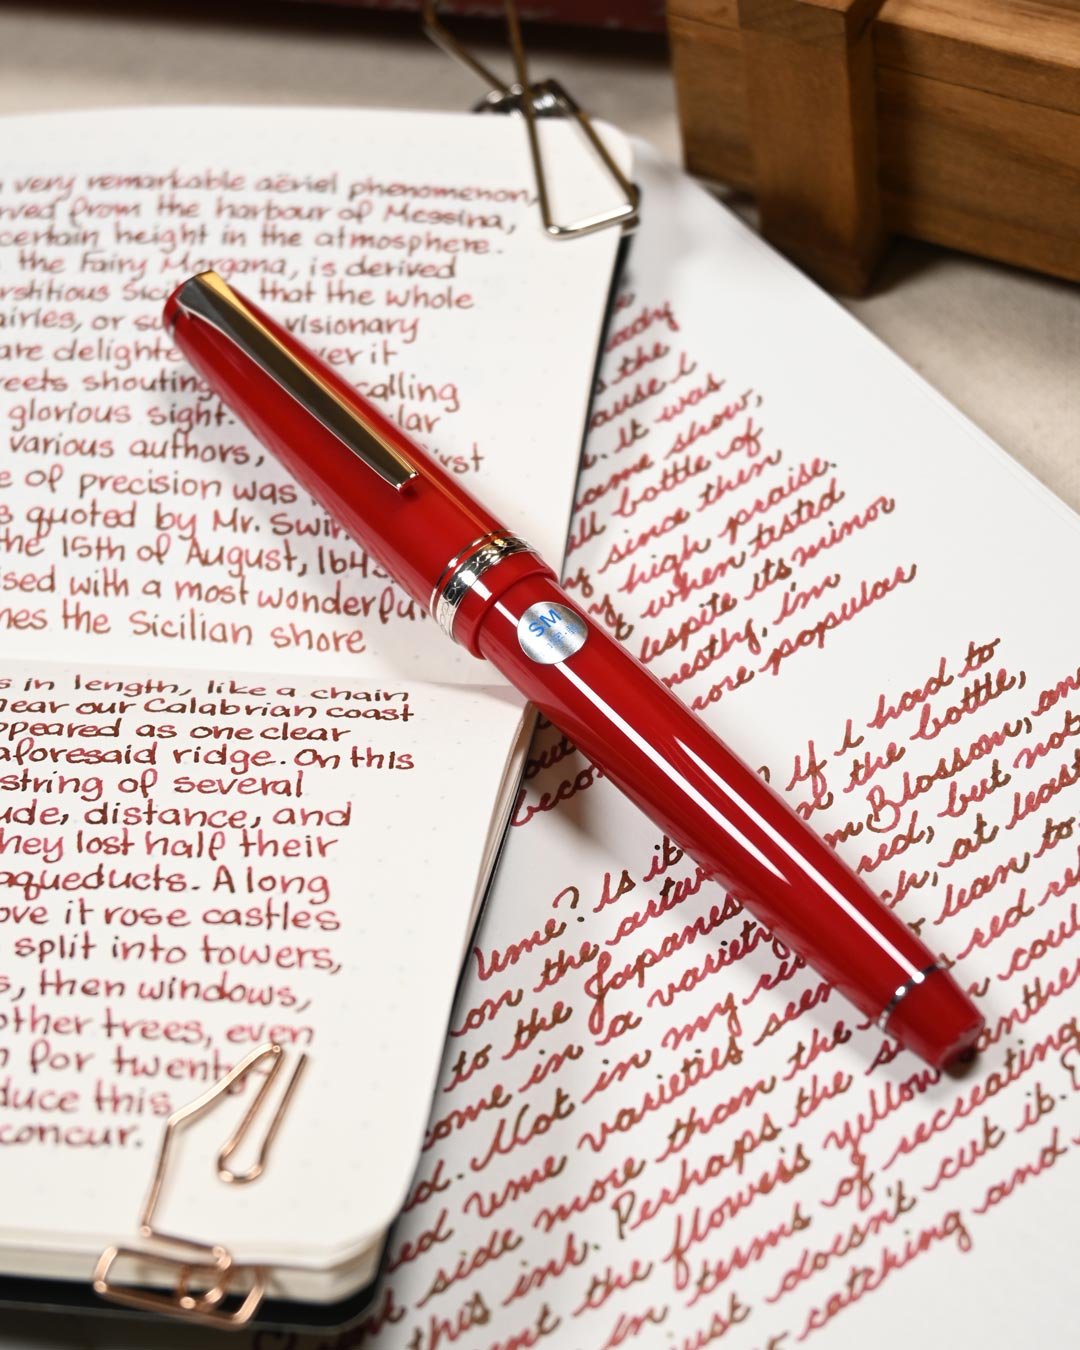 very remarkable aëriel phenomenon,
rved from the harbour of Messina,
certain height in the atmosphere.
the Fairy Morgana, is derived
rstitious Sici that the whole
airies, or su visionary
are delighte ver it
reets shouting calling
glorious sight. ilar
various authors, irst
e of precision was
s quoted by Mr. Swin
the 15th of August, 1643
ised with a most wonderful
mes the Sicilian shore
s in length, like a chain
near our Calabrian coast
ppeared as one clear
aforesaid ridge. On this
string of several
ude, distance, and
they lost half their
aqueducts. A long
ove it rose castles
split into towers,
s, then windows,
other trees, even
n for twenty
duce this
concur.
SM
eady
s the
ause I
. It was
same show,
ll bottle of
y since then
y high praise.
t when tested
despite its minor
nesthy, i'm
more popular
out
beco
? If I had to
n the bottle,
m Blossom, an
red, but not
ch, at least
lean to
red re
Ume? Is it
on the artw
to the Japanes
come in a variety
d. Not in my re
ed ume varieties seen
side more than the s
this ink. Perhaps the
ent the flower's yellow anther
in terms of recreating
just doesn't cut it.
catching and